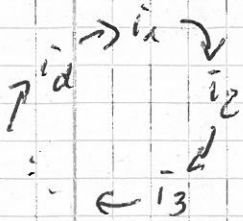 i_d → i_1 ↘ i_2
↗ ⋮ ← i_3 ↙